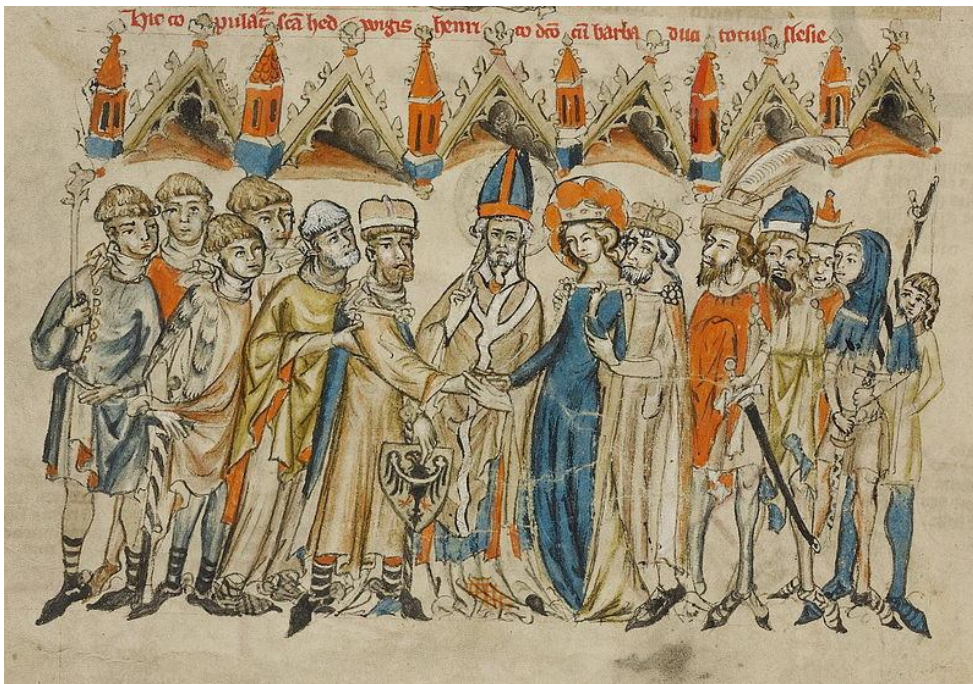 Hic copulat̃ scã hedwigis henrico dcõ cũ barba duci totius slesie